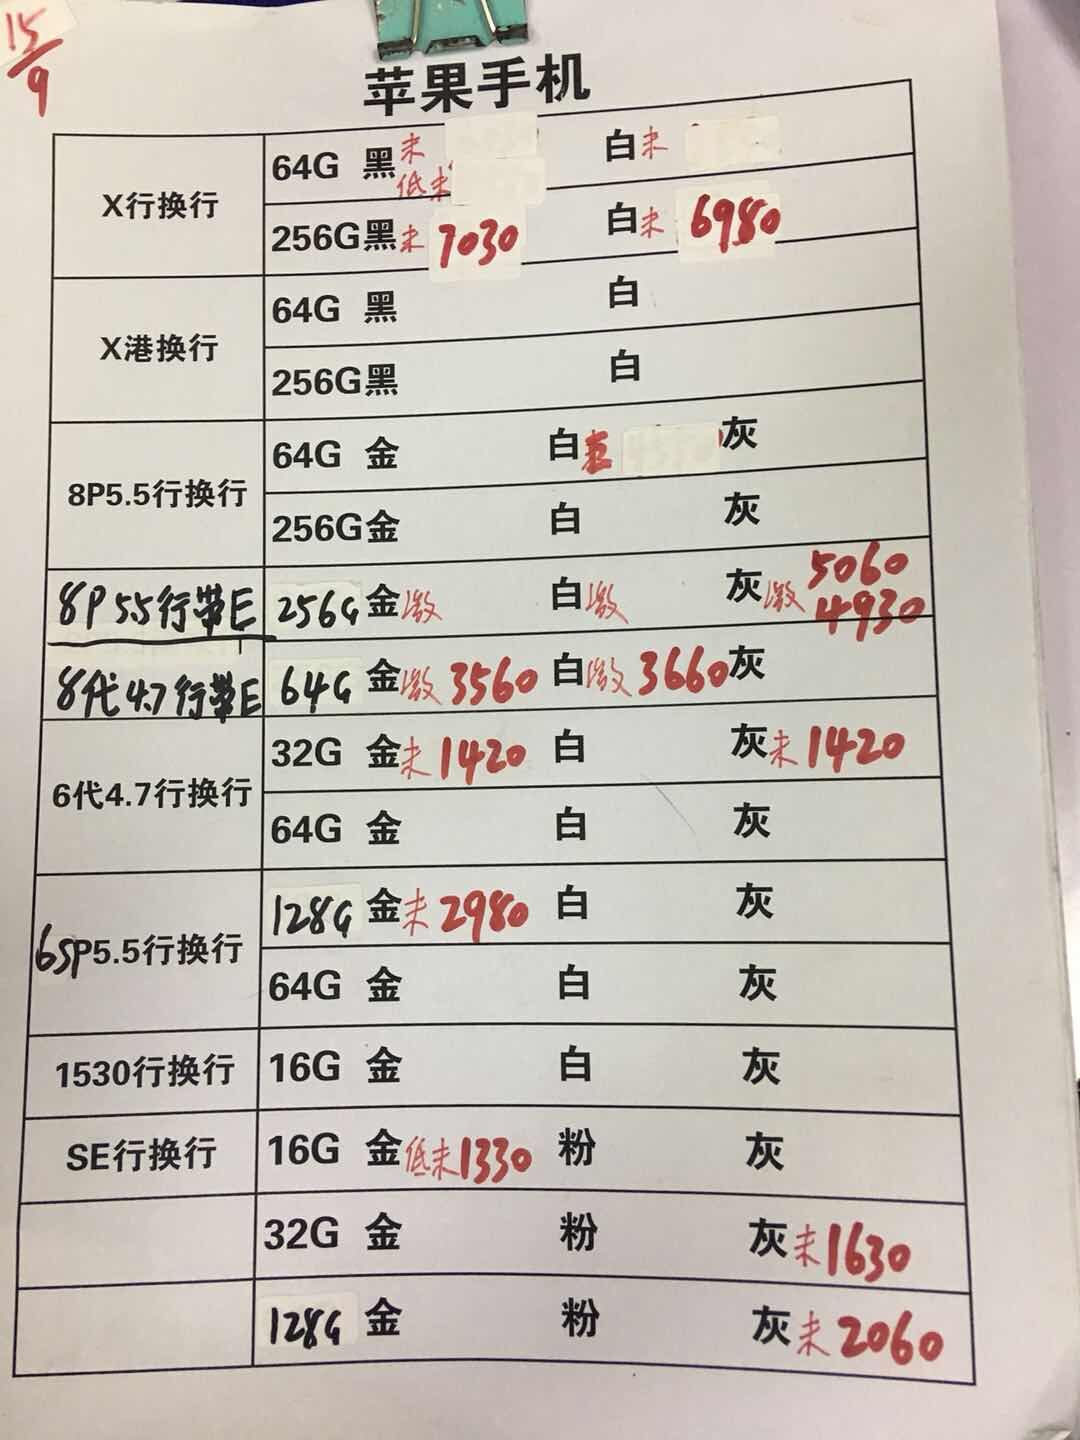 15/9
苹果手机
X行换行
64G 黑未 白未
低未
256G黑未 7030 白未 6980
X港换行
64G 黑 白
256G黑 白
8P5.5行换行
64G 金 白 灰
256G金 白 灰
8P 5.5行带E 256G 金激 白激 灰激 5060
4930
8代4.7行带E 64G 金激 3560 白激 3660 灰
6代4.7行换行
32G 金未 1420 白 灰未 1420
64G 金 白 灰
6SP5.5行换行
128G 金未 2980 白 灰
64G 金 白 灰
1530行换行 16G 金 白 灰
SE行换行 16G 金低未1330 粉 灰
32G 金 粉 灰未1630
128G 金 粉 灰未2060